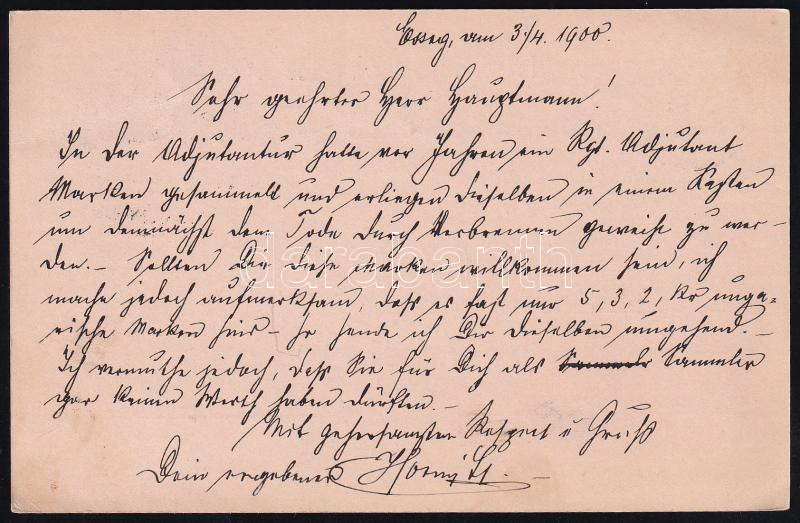 Esseg, am 3/4. 1900.
Sehr geehrter Herr Hauptmann!
In der Adjutantur hatte vor Jahren ein Rgt. Adjutant
Marken gesammelt und erliegen dieselben in einem Kasten
um demnächst dem Tode durch Verbrennen geweiht zu wer-
den. – Sollten Dir diese Marken willkommen sein, ich
mache jedoch aufmerksam, dass es fast nur 5, 3, 2, Kr unga-
rische Marken sind – so sende ich Dir dieselben umgehend. –
Ich vermuthe jedoch, dass Sie für Dich als Sammler
gar keinen Werth haben dürften. –
Mit gehorsamsten Respect u Gruß
Dein ergebener
darabanth